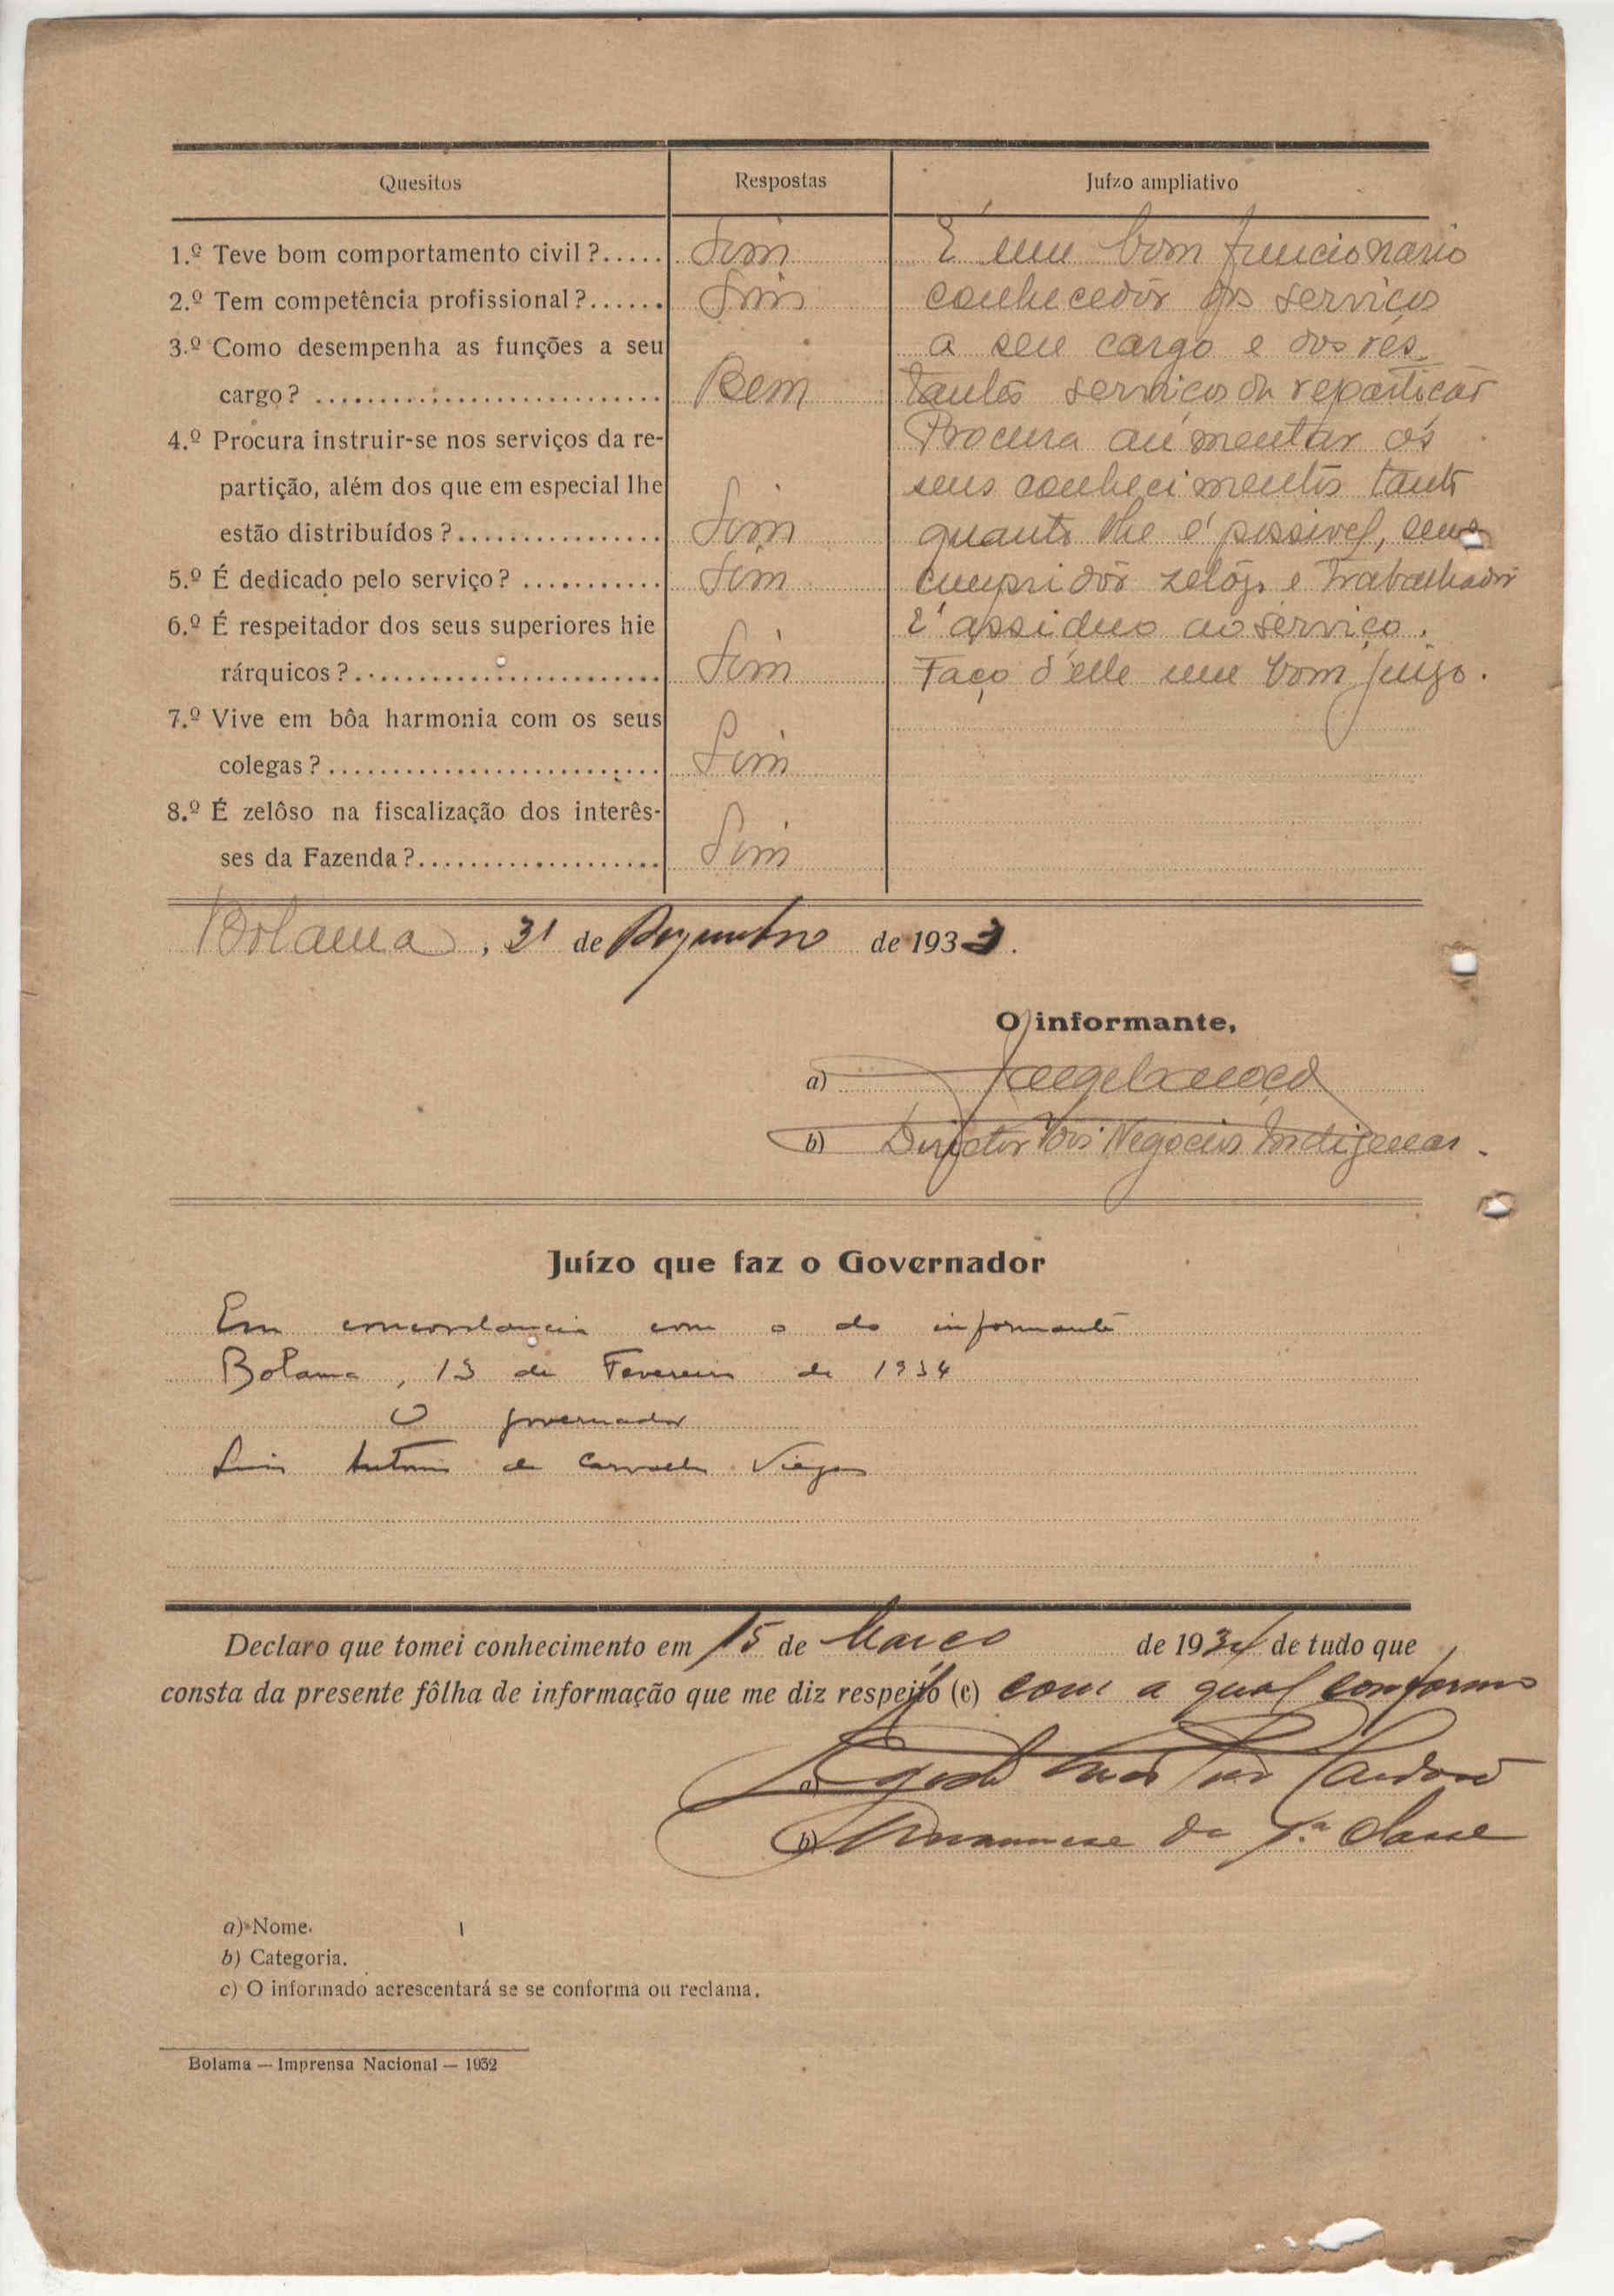 Quesitos Respostas Juízo ampliativo
1.º Teve bom comportamento civil?..... Sim É um bom funcionario
2.º Tem competência profissional?...... Sim conhecedôr dos serviços
3.º Como desempenha as funções a seu a seu cargo e dos res
cargo? ........................... Bem tantes serviços da repartição
4.º Procura instruir-se nos serviços da re- Procura aumentar os
partição, além dos que em especial lhe seus conhecimentos tanto
estão distribuídos?................ Sim quanto lhe é possivel,
5.º É dedicado pelo serviço? ........... Sim cumpridôr zelôso e trabalhador
6.º É respeitador dos seus superiores hie É assiduo ao serviço.
rárquicos?........................ Sim Faço d'elle um bom juizo.
7.º Vive em bôa harmonia com os seus
colegas?.......................... Sim
8.º É zelôso na fiscalização dos interês-
ses da Fazenda?................... Sim
Bolama, 31 de Dezembro de 1933.
O informante,
a)
b) Director dos Negocios Indigenas.
Juízo que faz o Governador
Em concordancia com o do informante
Bolama, 13 de Fevereiro de 1934
O governador
Luis Antonio de Carvalho Viegas
Declaro que tomei conhecimento em 15 de Março de 1934 de tudo que
consta da presente fôlha de informação que me diz respeito (c) com a qual conformo
a) Cardoso
b) Amanuense de 1.ª classe
a) Nome.
b) Categoria.
c) O informado acrescentará se se conforma ou reclama.
Bolama — Imprensa Nacional — 1932